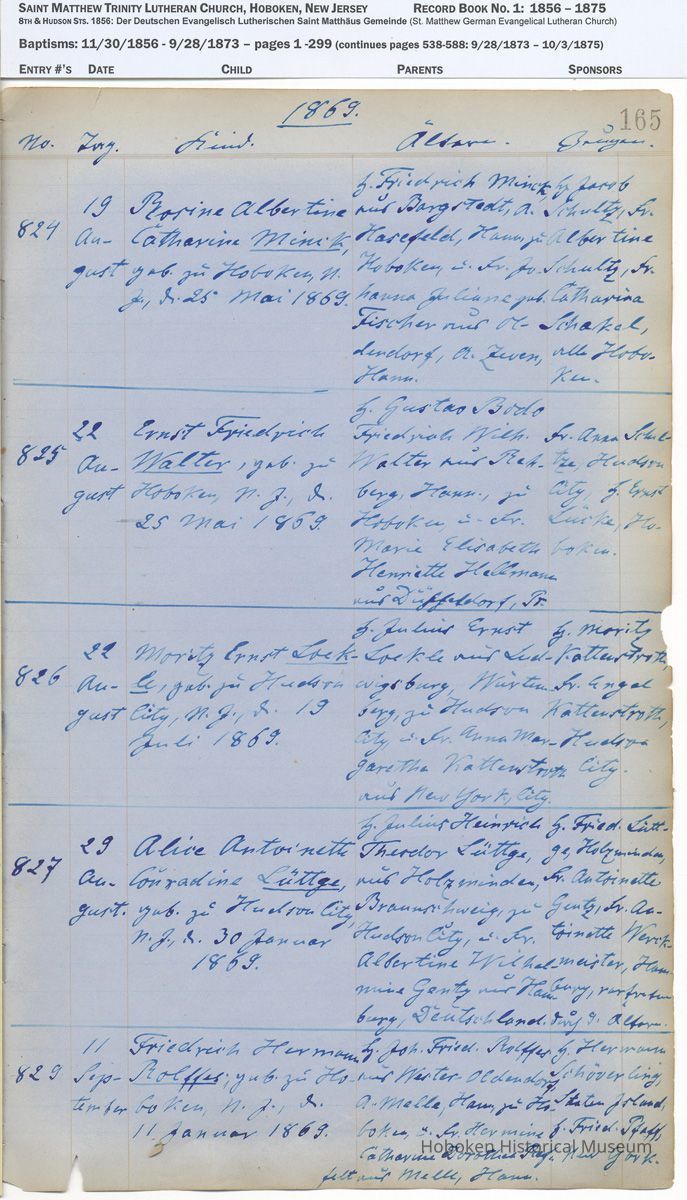 SAINT MATTHEW TRINITY LUTHERAN CHURCH, HOBOKEN, NEW JERSEY RECORD BOOK NO. 1: 1856 – 1875
8TH & HUDSON STS. 1856: Der Deutschen Evangelisch Lutherischen Saint Matthäus Gemeinde (St. Matthew German Evangelical Lutheran Church)
Baptisms: 11/30/1856 - 9/28/1873 – pages 1 -299 (continues pages 538-588: 9/28/1873 – 10/3/1875)
ENTRY #'S DATE CHILD PARENTS SPONSORS
1869.
165
No. Tag. Kind. Ältern. Zeugen.
824
19
Au-
gust
Rosine Albertine
Catharine Minik,
geb. zu Hoboken, N.
J., d. 25 Mai 1869.
H. Friedrich Minik
aus Bargstedt, A.
Hasefeld, Hann, zu
Hoboken, u. Fr. Jo-
hanna Juliane geb.
Fischer aus Ol-
dendorf, A. Zeven,
Hann.
H. Jacob
Schultz, Fr.
Albertine
Schultz, Fr.
Catharina
Schakel,
alle Hobo-
ken.
825
22
Au-
gust
Ernst Friedrich
Walter, geb. zu
Hoboken, N. J., d.
25 Mai 1869.
H. Gustav Bodo
Friedrich Wilh.
Walter aus Reh-
berg, Hann., zu
Hoboken, u. Fr.
Marie Elisabeth
Henriette Hellmann
aus Düsseldorf, Pr.
Fr. Anna Schul-
tze, Hudson
City, H. Ernst
Lücke, Ho-
boken.
826
22
Au-
gust
Moritz Ernst Loek-
le, geb. zu Hudson
City, N. J., d. 19
Juli 1869.
H. Julius Ernst
Loekle aus Lud-
wigsburg, Würtem-
berg, zu Hudson
City u. Fr. Anna Mar-
garetha Kattenstroth
aus New York, City.
H. Moritz
Kattenstroth,
Fr. Engel
Kattenstroth,
Hudson
City.
827
29
Au-
gust.
Alice Antoinette
Conradine Lüttge,
geb. zu Hudson City,
N. J., d. 30 Januar
1869.
H. Julius Heinrich
Theodor Lüttge,
aus Holzminden,
Braunschweig, zu
Hudson City, u. Fr.
Albertine Wilhel-
mine Gentz aus Ham-
burg, Deutschland.
H. Fried. Lütt-
ge, Holzminden,
Fr. Antoinette
Gentz, Fr. An-
toinette Werk-
meister, Ham-
burg, vertreten
durch d. Ältern.
829
11
Sep-
tember
Friedrich Hermann
Rolffes, geb. zu Ho-
boken, N. J., d.
11 Januar 1869.
H. Joh. Fried. Rolffes
aus Wester-Oldendorf,
A. Melle, Hann, zu Ho-
boken, u. Fr. Hermine
Catharine Dorothee
aus Melle, Hann.
H. Hermann
Schöverling,
Staten Island,
H. Fried. Pfaff,
New York.
Hoboken Historical Museum